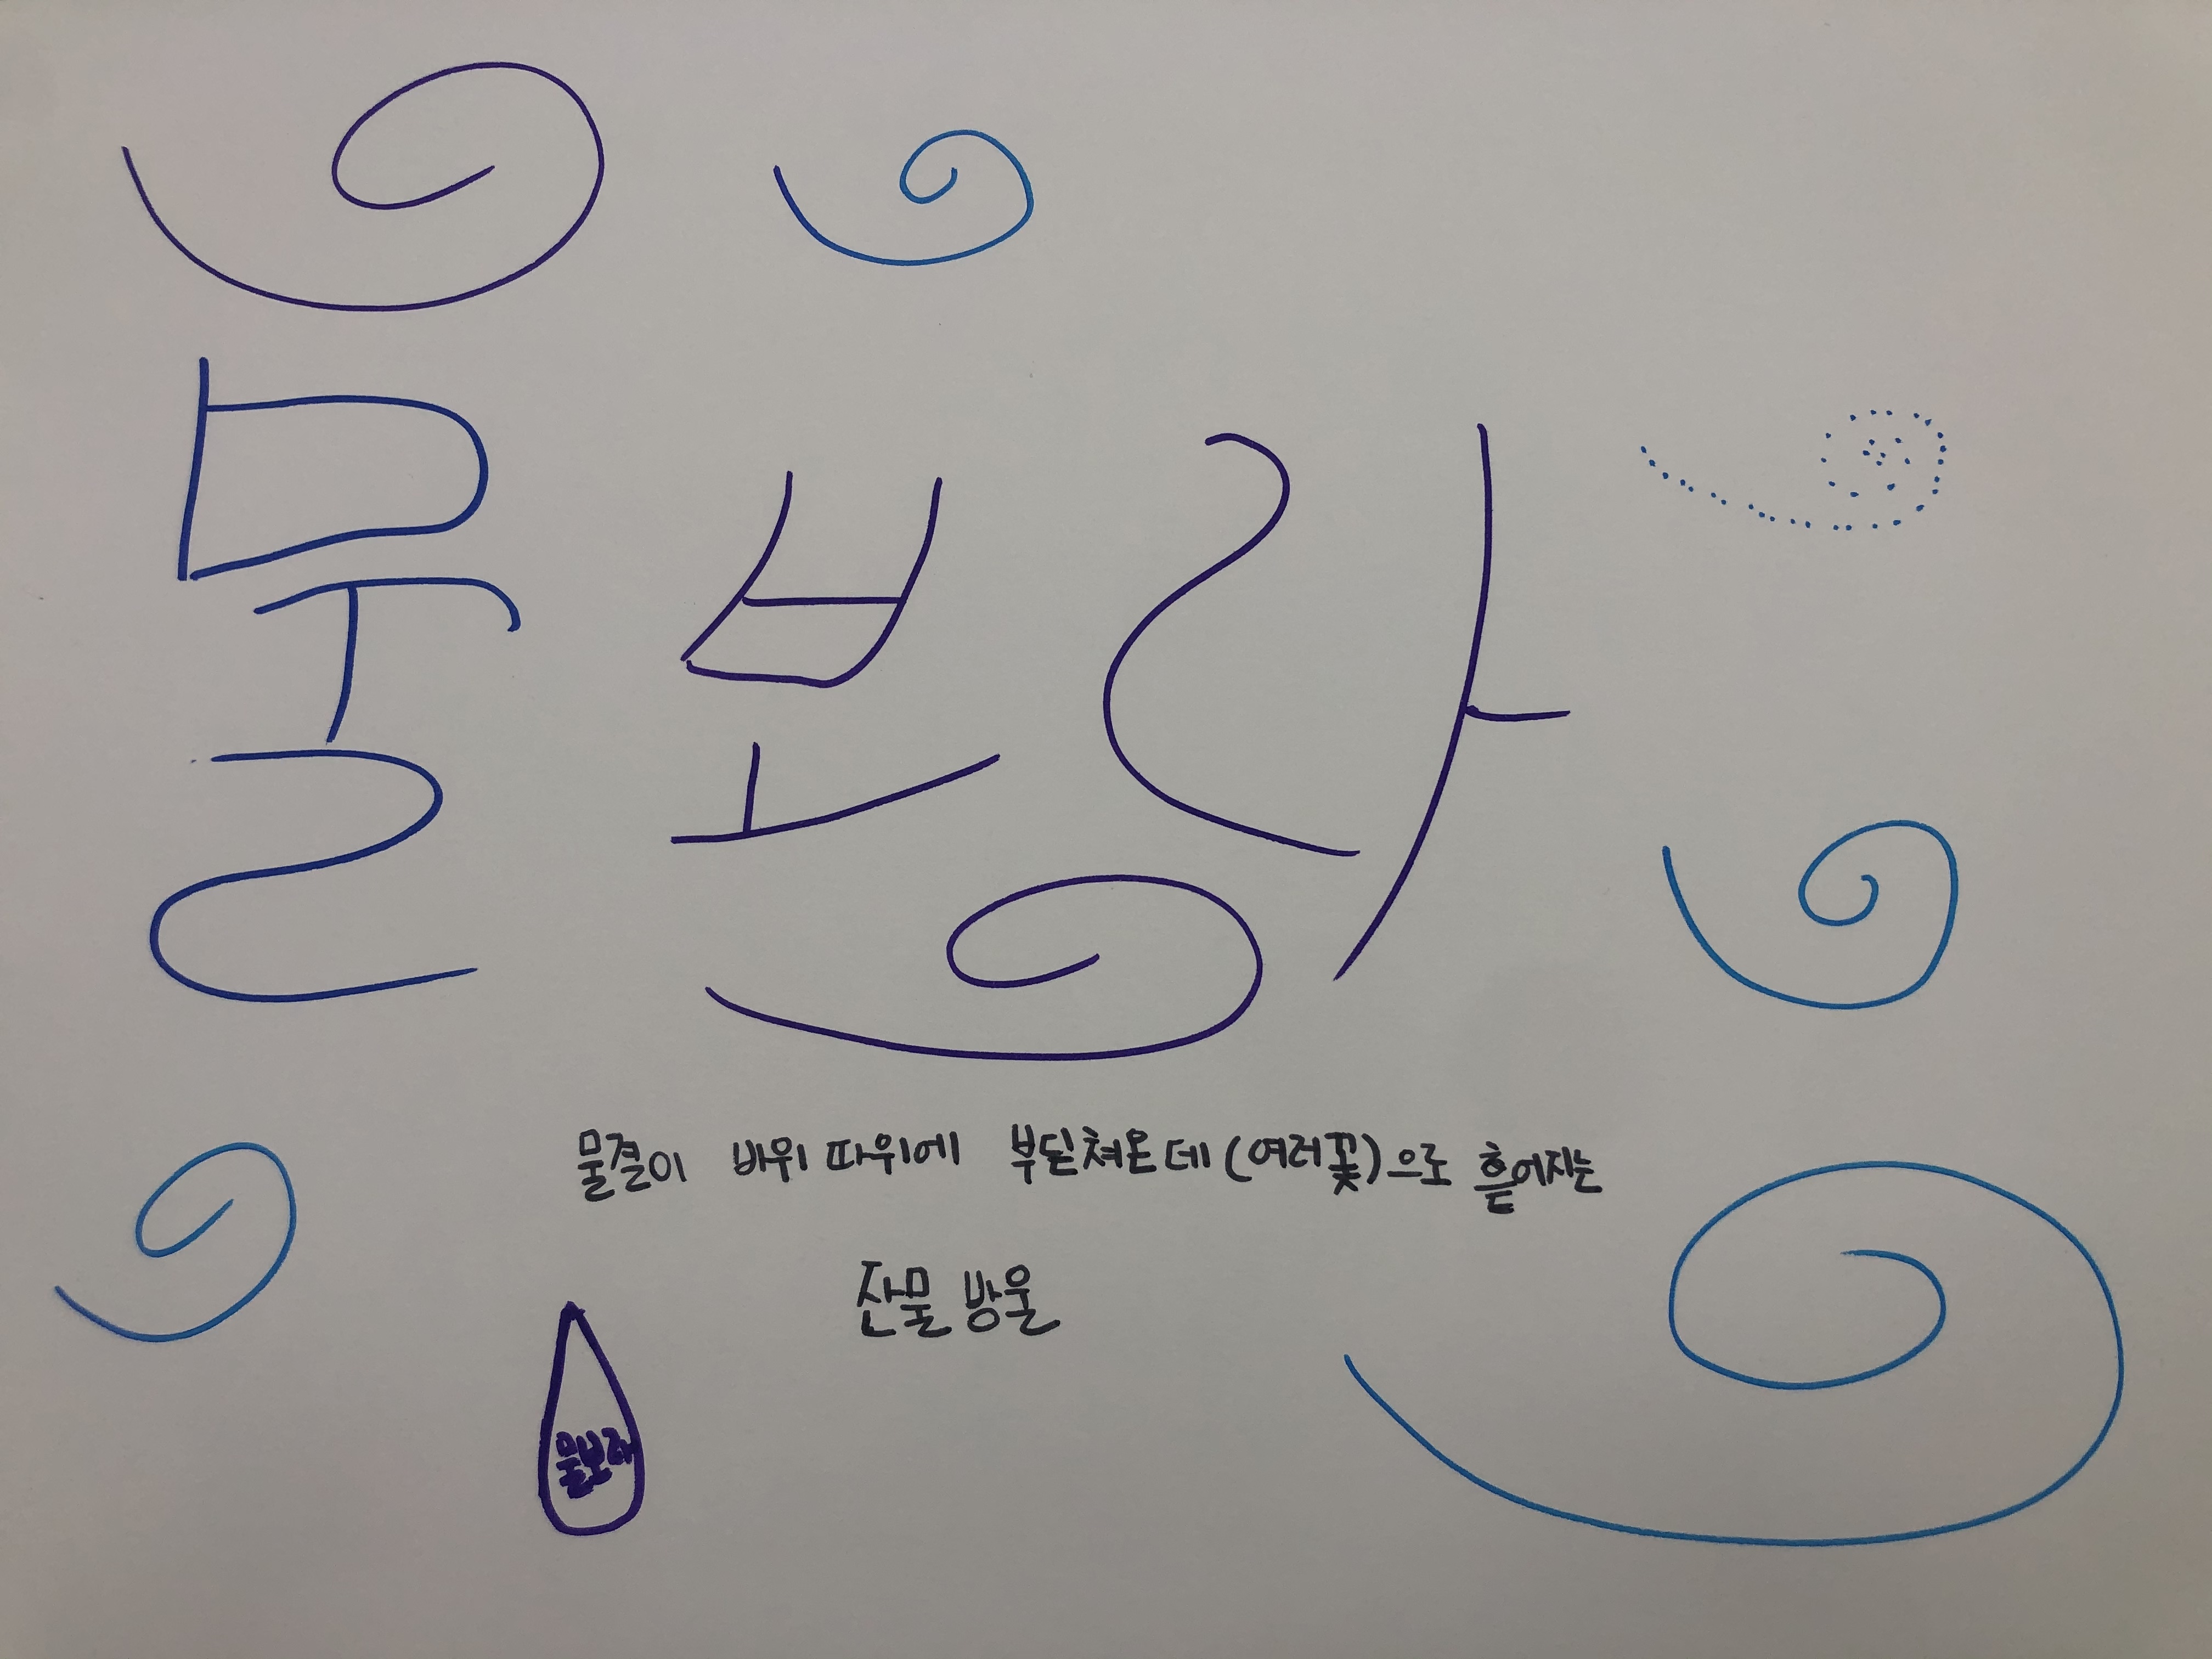 물보라
물결이 바위 따위에 부딛쳐온데 (여러꽃)으로 흩어지는
잔물 방울
물보라